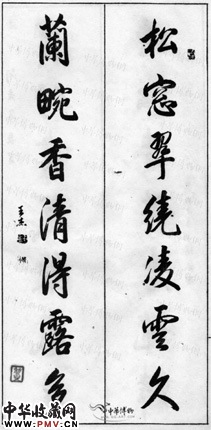 松窓翠繞凌雲久
蘭畹香清得露多
王杰
中华博物
中华收藏网
www.PMV.cn